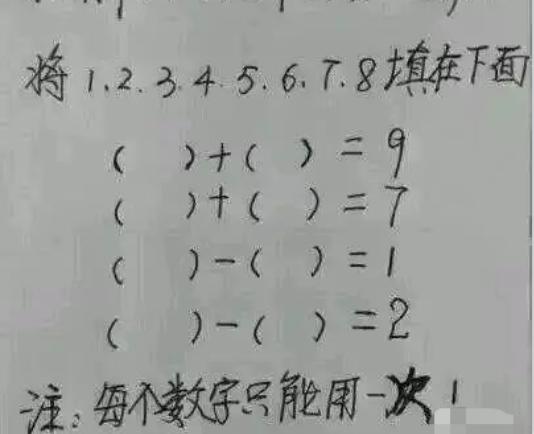 将 1.2.3.4.5.6.7.8填在下面
( )+( )=9
( )+( )=7
( )-( )=1
( )-( )=2
注:每个数字只能用一次!